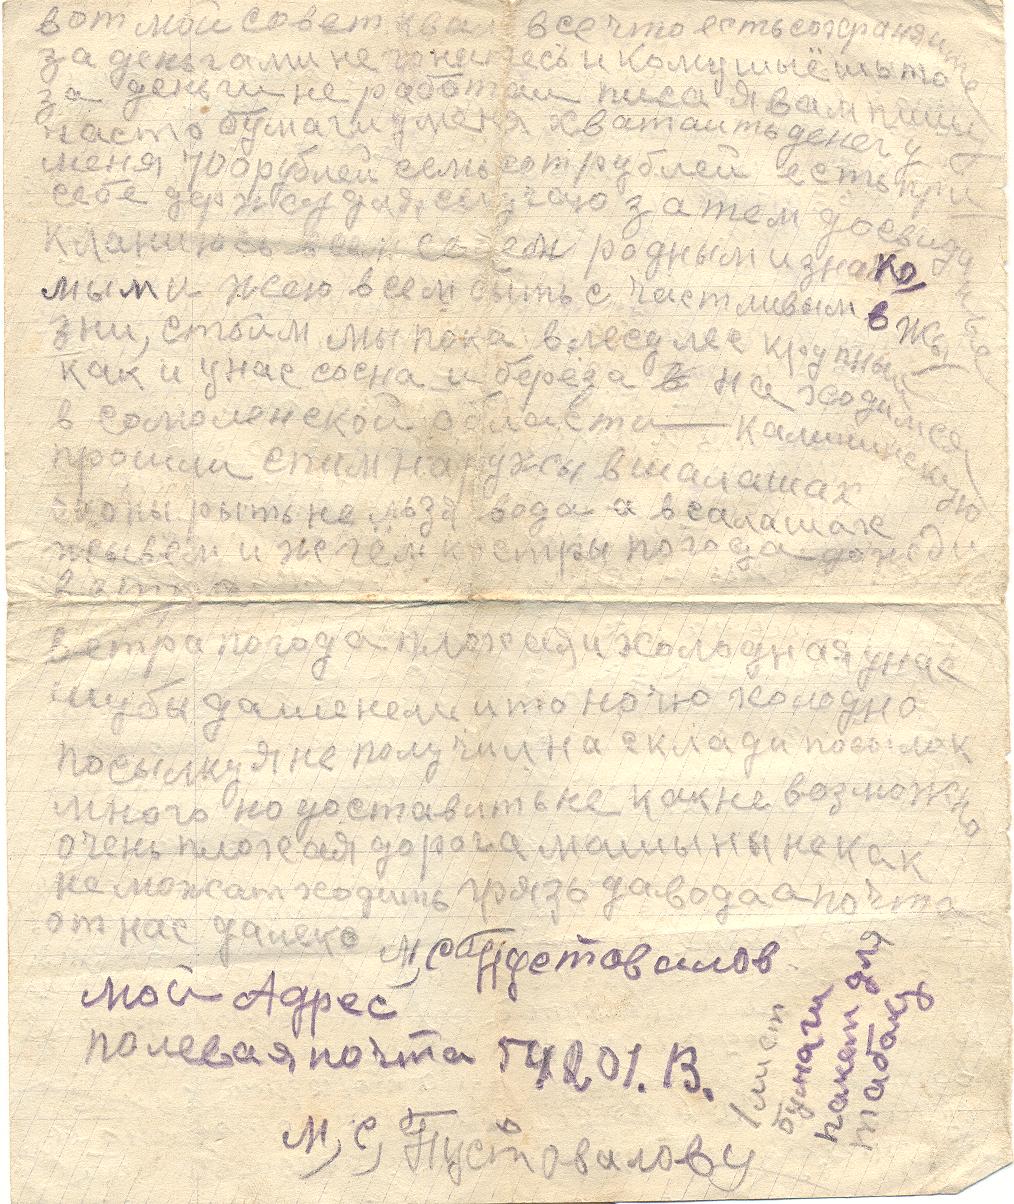 вот мой совет к вам все что есть сохраняите
за деньгами не гонитесь и кому шьёшь то
за деньги не работай писа я вам пишу
часто бумаги у меня хватаить денег у
меня 700 рублей семьсот рублей есть при
себе держу для случаю затем досвиданье
кланиюсь всем родным и знако
мыми жею всем быть счастливым в жы
зни, стоим мы пока в лесу лес крупный
как и у нас сосна и береза находимся
в сомоленской области — калининскую
прошли спим наружы в шалашах
рыть не льзя вода а в салашах
жывем и жгём костры погода дожди
ветра
ветра погода плохая и холодная у нас
шубы да шенели и то ночю холодно
посылку я не получил на склади посылок
много но доставить не как не возможно
очень плохая дорога машыны не как
не можат ходить грязь да вода а почта
от нас далеко М,С Пустовалов
мой Адрес
полевая почта 54201. В.
М,С, Пустовалову
1 лист
бумаги
пакет для
табаку